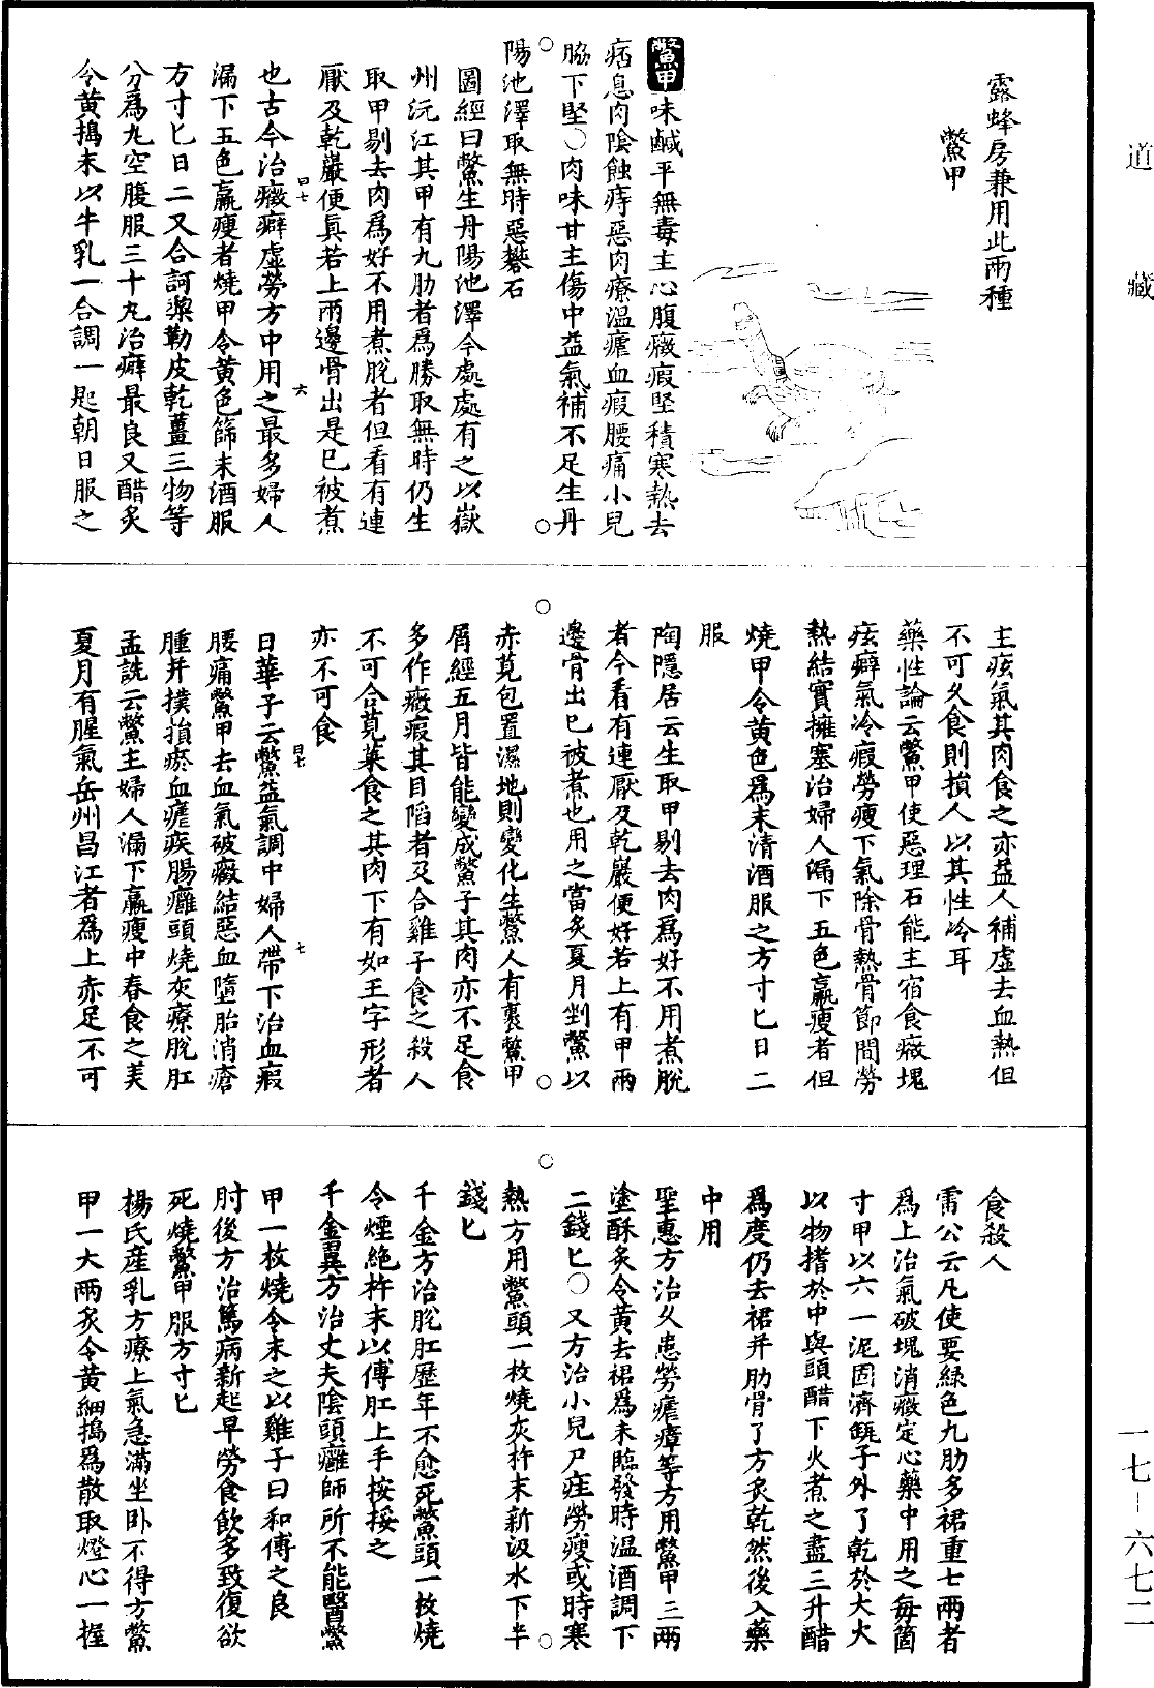 道藏
露蜂房兼用此兩種
鱉甲
鱉甲味鹹平無毒主心腹癥瘕堅積寒熱去
痞息肉陰蝕痔惡肉療溫瘧血瘕腰痛小兒
脇下堅○肉味甘主傷中益氣補不足生丹
陽池澤取無時惡礬石
圖經曰鱉生丹陽池澤今處處有之以嶽
州沅江其甲有九肋者爲勝取無時仍生
取甲剔去肉爲好不用煮脫者但看有連
厭及乾巖便真若上兩邊骨出是已被煮
也古今治癥癖虛勞方中用之最多婦人
漏下五色羸瘦者燒甲令黃色篩末酒服
方寸匕日二又合訶梨勒皮乾薑三物等
分爲丸空腹服三十丸治癖最良又醋炙
令黃搗末以牛乳一合調一匙朝日服之
曰七
六
主痃氣其肉食之亦益人補虛去血熱但
不可久食則損人以其性冷耳
藥性論云鱉甲使惡理石能主宿食癥塊
痃癖氣冷瘕勞瘦下氣除骨熱骨節間勞
熱結實擁塞治婦人漏下五色羸瘦者但
燒甲令黃色爲末清酒服之方寸匕日二
服
陶隱居云生取甲剔去肉爲好不用煮脫
者今看有連厭及乾巖便好若上有甲兩
邊骨出已被煮也用之當炙夏月剉鱉以
赤莧包置濕地則變化生鱉人有裹鱉甲
屑經五月皆能變成鱉子其肉亦不足食
多作癥瘕其目陷者及合雞子食之殺人
不可合莧菜食之其肉下有如王字形者
亦不可食
日華子云鱉益氣調中婦人帶下治血瘕
腰痛鱉甲去血氣破癥結惡血墮胎消瘡
腫并撲損瘀血瘧疾腸癰頭燒灰療脫肛
孟詵云鱉主婦人漏下羸瘦中春食之美
夏月有腥氣岳州昌江者爲上赤足不可
曰七
七
食殺人
雷公云凡使要綠色九肋多裙重七兩者
爲上治氣破塊消癥定心藥中用之每箇
寸甲以六一泥固濟缾子外了乾於大火
以物搘於中與頭醋下火煮之盡三升醋
爲度仍去裙并肋骨了方炙乾然後入藥
中用
聖惠方治久患勞瘧瘴等方用鱉甲三兩
塗酥炙令黃去裙爲末臨發時溫酒調下
二錢匕○又方治小兒尸疰勞瘦或時寒
熱方用鱉頭一枚燒灰杵末新汲水下半
錢匕
千金方治脫肛歷年不愈死鱉頭一枚燒
令煙絕杵末以傅肛上手按挼之
千金翼方治丈夫陰頭癰師所不能醫鱉
甲一枚燒令末之以雞子白和傅之良
肘後方治篤病新起早勞食飲多致復欲
死燒鱉甲服方寸匕
楊氏産乳方療上氣急滿坐臥不得方鱉
甲一大兩炙令黃細搗爲散取燈心一握
一七—六七二